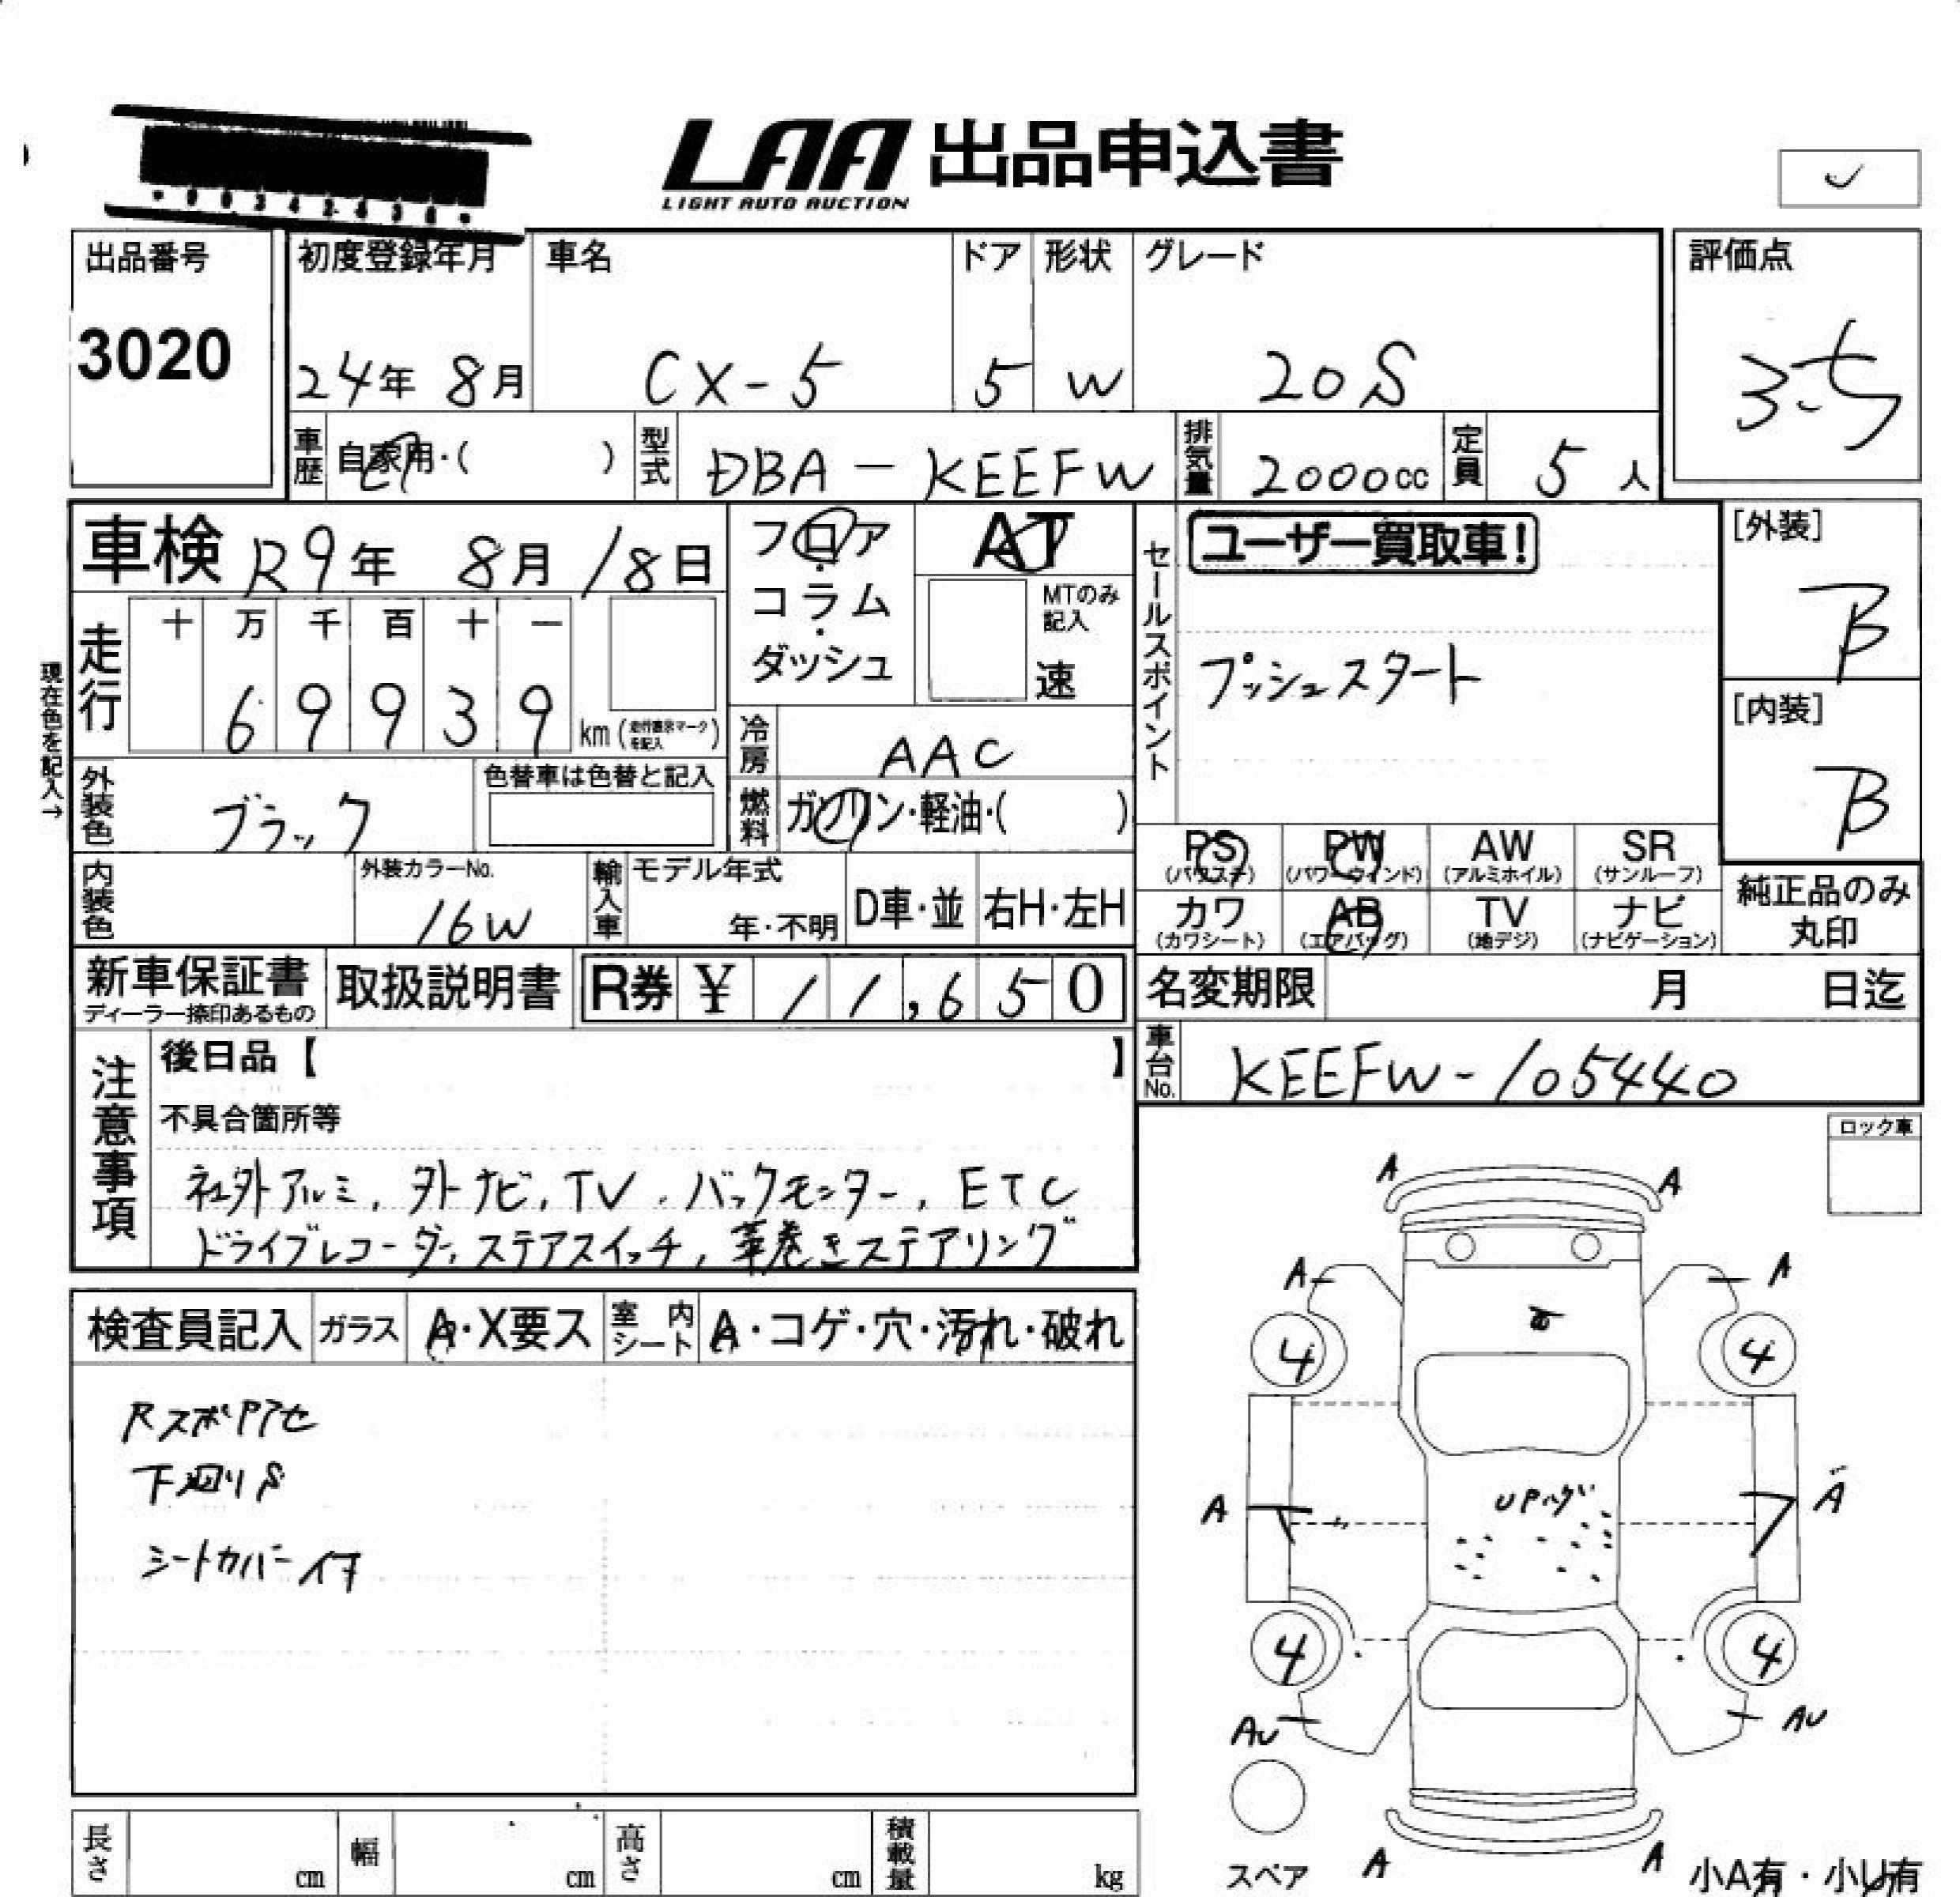 LAA 出品申込書
LIGHT AUTO AUCTION
出品番号
3020
初度登録年月
24年 8月
車名
CX-5
ドア
5
形状
W
グレード
20S
評価点
3.5
車歴 自家用・( )
型式 DBA-KEEFW
排気量 2000cc
定員 5人
車検 R9年 8月 18日
走行
十 万 千 百 十 一
6 9 9 3 9 km
現在色を記入→
フロア
コラム
ダッシュ
AT
MTのみ
記入
速
セールスポイント
ユーザー買取車!
プッシュスタート
[外装]
B
[内装]
B
冷房 AAC
燃料 ガソリン・軽油・( )
外装色 ブラック
色替車は色替と記入
内装色
外装カラーNo.
16W
輸入車
モデル年式
年・不明
D車・並
右H・左H
PS
(パワステ)
PW
(パワーウインド)
AW
(アルミホイル)
SR
(サンルーフ)
カワ
(カワシート)
AB
(エアバッグ)
TV
(地デジ)
ナビ
(ナビゲーション)
純正品のみ
丸印
新車保証書
ディーラー捺印あるもの
取扱説明書
R券 ¥ 11,650
名変期限 月 日迄
車台No. KEEFW-105440
注意事項
後日品【 】
不具合箇所等
社外アルミ, 外ナビ, TV, バックモニター, ETC
ドライブレコーダー, ステアスイッチ, 革巻きステアリング
ロック車
検査員記入
ガラス A・X要ス
室内シート A・コゲ・穴・汚れ・破れ
下廻りS
シートカバー付
A A
A A
4 4
A A
4 4
AU AU
スペア
A A
小A有・小U有
長さ cm
幅 cm
高さ cm
積載量 kg